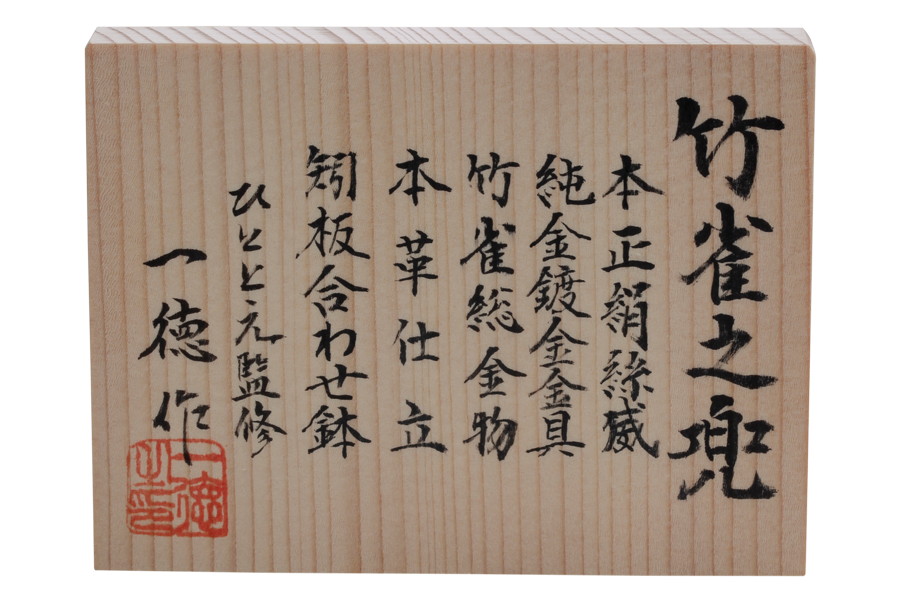 竹雀之兜
本正絹絲威
純金鍍金金具
竹雀総金物
本革仕立
矧板合わせ鉢
ひとと元監修
一徳作
一徳之印